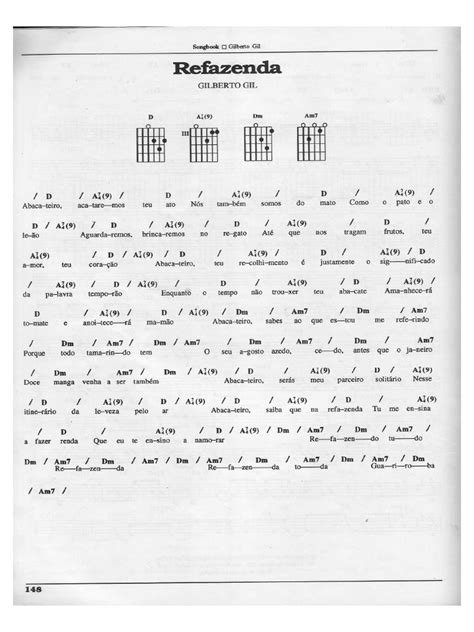 Songbook □ Gilberto Gil
Refazenda
GILBERTO GIL
D A⁷₄(9) Dm Am7
III
/ D / A⁷₄(9) / D / A⁷₄(9) / D / A⁷₄(9) /
Abaca-teiro, aca-tare—mos teu ato Nós tam-bém somos do mato Como o pato e o
D / A⁷₄(9) / D / A⁷₄(9) / D / A⁷₄(9) / D /
le-ão Aguarda-remos, brinca-remos no re-gato Até que nos tragam frutos, teu
A⁷₄(9) / D / A⁷₄(9) / D / A⁷₄(9) / D / A⁷₄(9)
a-mor, teu cora-ção Abaca-teiro, teu re-colhi-mento é justamente o sig—nifi-cado
/ D / A⁷₄(9) / D / A⁷₄(9) / D / A⁷₄(9) /
da pa-lavra tempo-rão Enquanto o tempo não trou-xer teu aba-cate Ama-nhece-rá
D / A⁷₄(9) / D / Dm / Am7 / Dm / Am7
to-mate e anoi-tece—rá ma-mão Abaca-teiro, sabes ao que es—tou me refe-rindo
/ Dm / Am7 / Dm / Am7 / Dm / Am7 /
Porque todo tama-rin-do tem O seu a-gosto azedo, ce—do, antes que o ja-neiro
Dm / Am7 / Dm / Am7 / D / A⁷₄(9) / D / A⁷₄(9) /
Doce manga venha a ser também Abaca-teiro, serás meu parceiro solitário Nesse
D / A⁷₄(9) / D / A⁷₄(9) / D / A⁷₄(9) / D / A⁷₄(9)
itine-rário da le-veza pelo ar Abaca-teiro, saiba que na refa-zenda Tu me en-sina
/ D / A⁷₄(9) / D / A⁷₄(9) / Dm / Am7 /
a fazer renda Que eu te en-sino a namo-rar Re—fa-zen—do tu—do
Dm / Am7 / Dm / Am7 / Dm / Am7 / Dm / Am7 / Dm
Re—fa—zen—da Re—fa-zen—do to—da Gua—ri—ro—ba
/ Am7 /
148